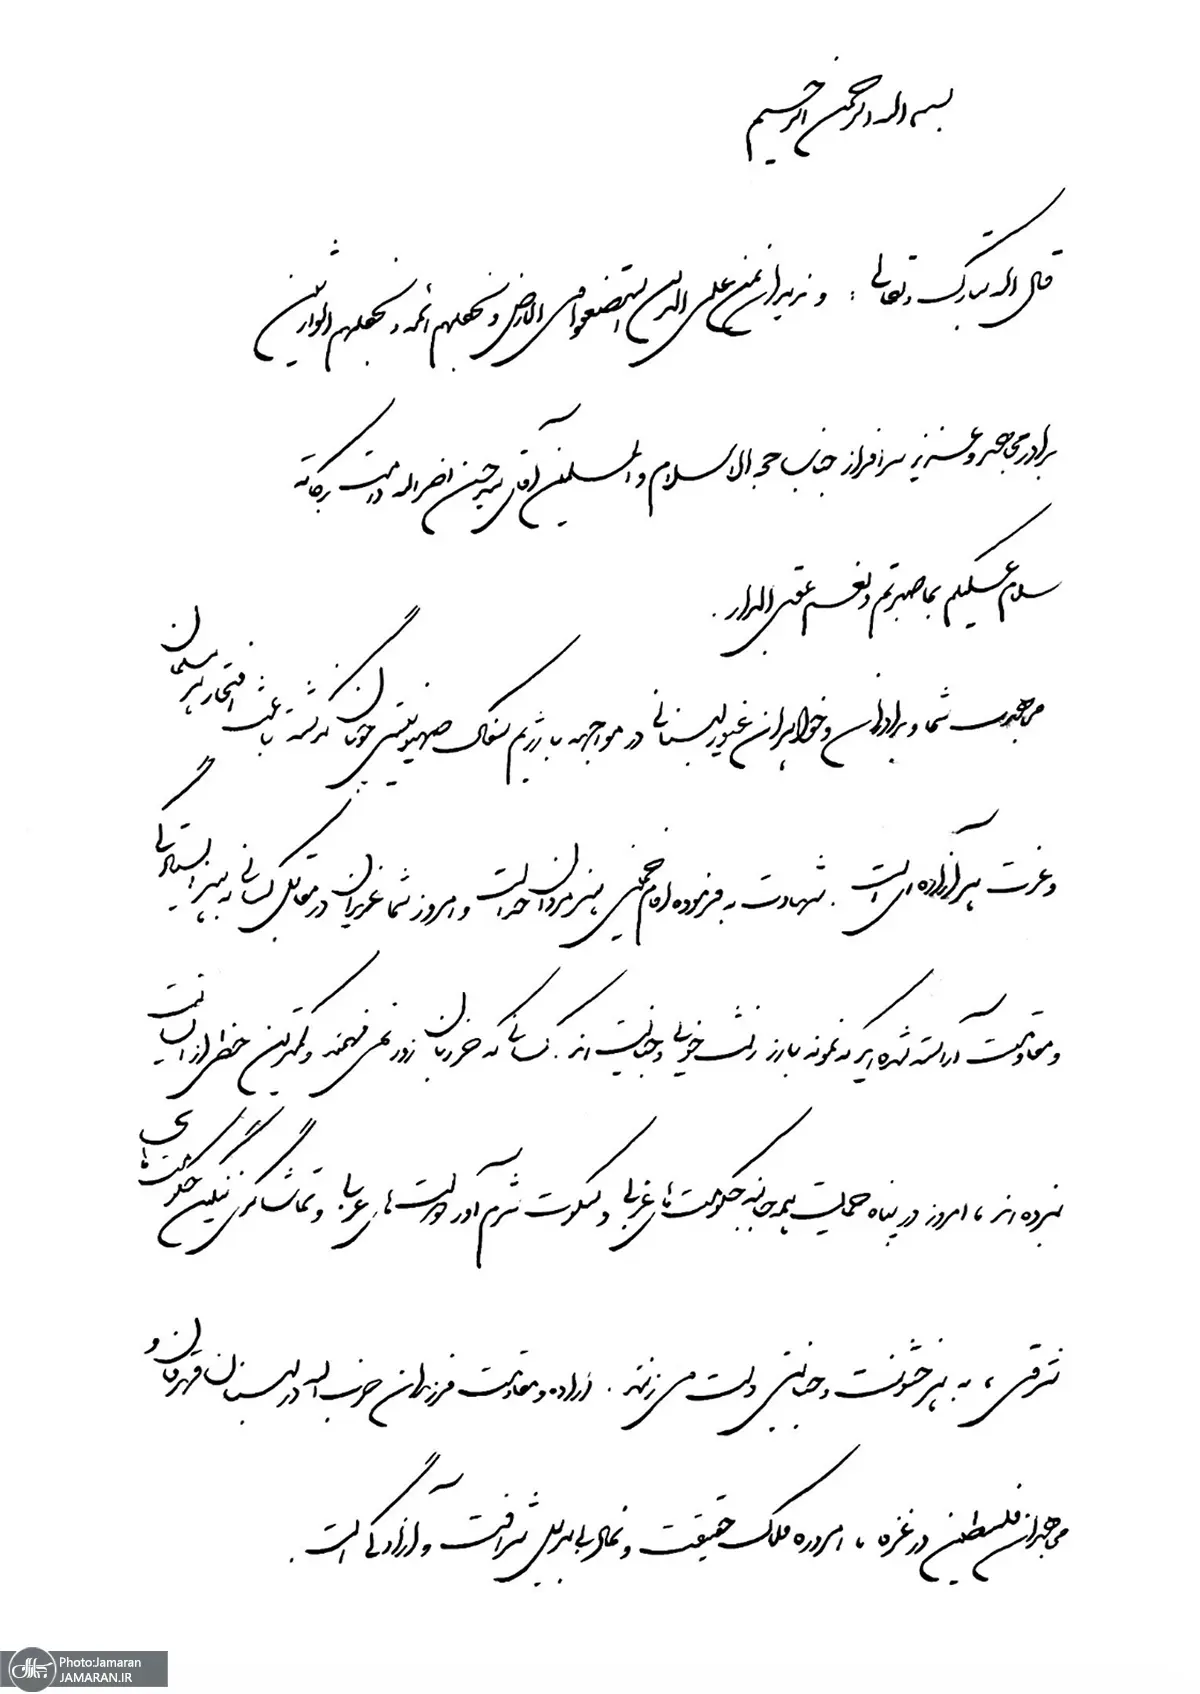 بسم الله الرحمن الرحیم
قال الله تبارک و تعالی : و نرید ان نمن علی الذین استضعفوا فی الارض و نجعلهم ائمة و نجعلهم الوارثین
برادر مجاهد و عزیز سرافراز جناب حجة الاسلام و المسلمین آقای سید حسن نصرالله دامت برکاته
سلام علیکم بما صبرتم و نعم عقبی الدار .
مجاهدت شما و برادران و خواهران غیور لبنانی در مواجهه با رژیم سفاک صهیونیستی چونان گذشته باعث افتخار هر مسلمان
و عزت هر آزاده ای است . شهادت به فرموده امام خمینی هنر مردان خداست و امروز شما عزیزان در مقابل کسانی به هنر ایستادگی
و مقاومت آراسته شده اید که نمونه بارز زشت خویی و جنایت اند . کسانی که جز زبان زور نمی فهمند و کمترین حظی از انسانیت
نبرده اند ، امروز در پناه حمایت همه جانبه حکومت های غربی و سکوت شرم آور دولت های عربی و تماشاگری ننگین حکومت های
شرقی ، به هر خشونت و جنایتی دست می زنند . اراده و مقاومت فرزندان حزب الله در لبنان قهرمان و
مجاهدان فلسطین در غزه ، امروزه ملاک حقیقت و نماد بی بدیل شرافت و آزادگی است .
Photo:Jamaran
JAMARAN.IR